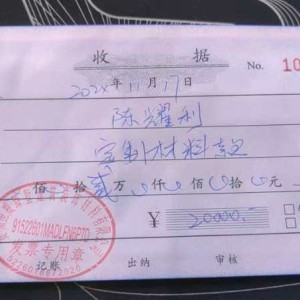 收 据
2024年11月17日
No. 10
陈耀利
定制材料款
佰 拾 贰 万 0 仟 0 佰 0 拾 0 元
¥ 20000.-
91522601MADLFN6P7D
发票专用章
记账 出纳 审核